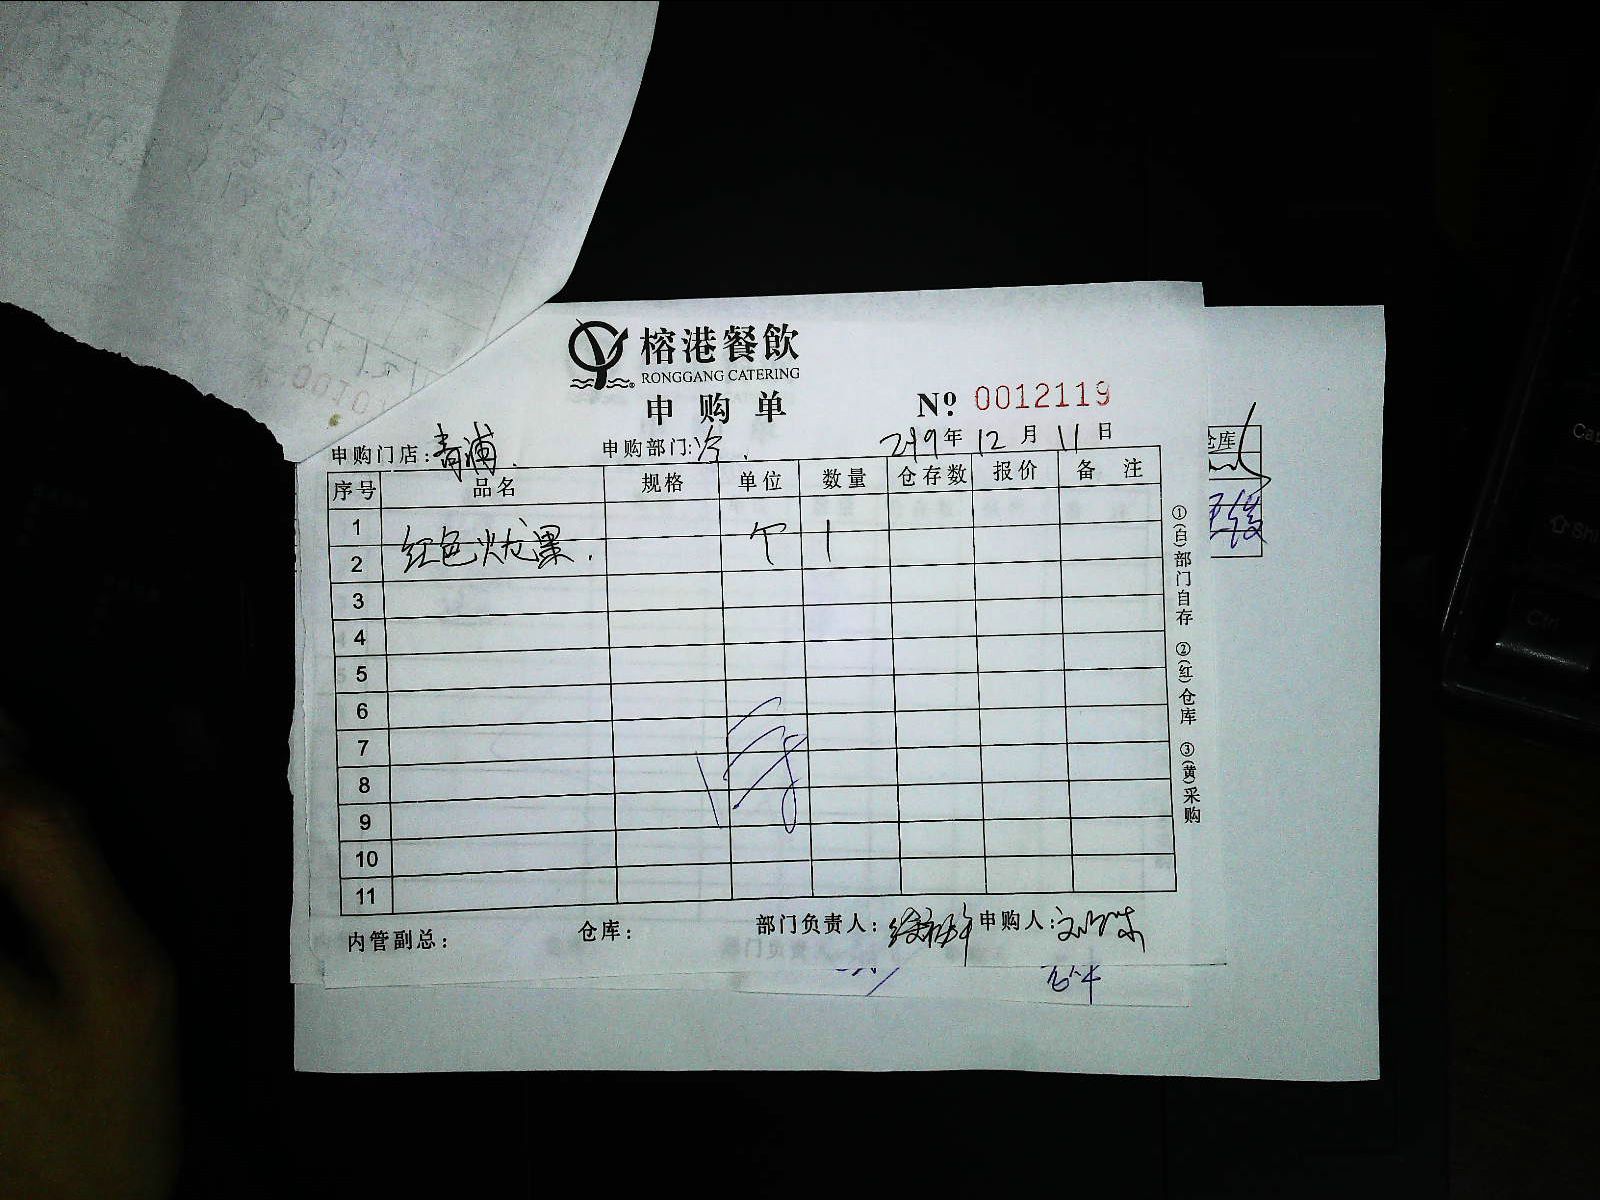 榕港餐飲
RONGGANG CATERING
申购单 Nº 0012119
申购门店:青浦. 申购部门:冷. 2019年12月11日
序号 品名 规格 单位 数量 仓存数 报价 备注
1
2 红色火龙果. 个 1
3
4
5
6
7
8
9
10
11
内管副总: 仓库: 部门负责人: 申购人:
①(白)部门自存 ②(红)仓库 ③(黄)采购
仓库